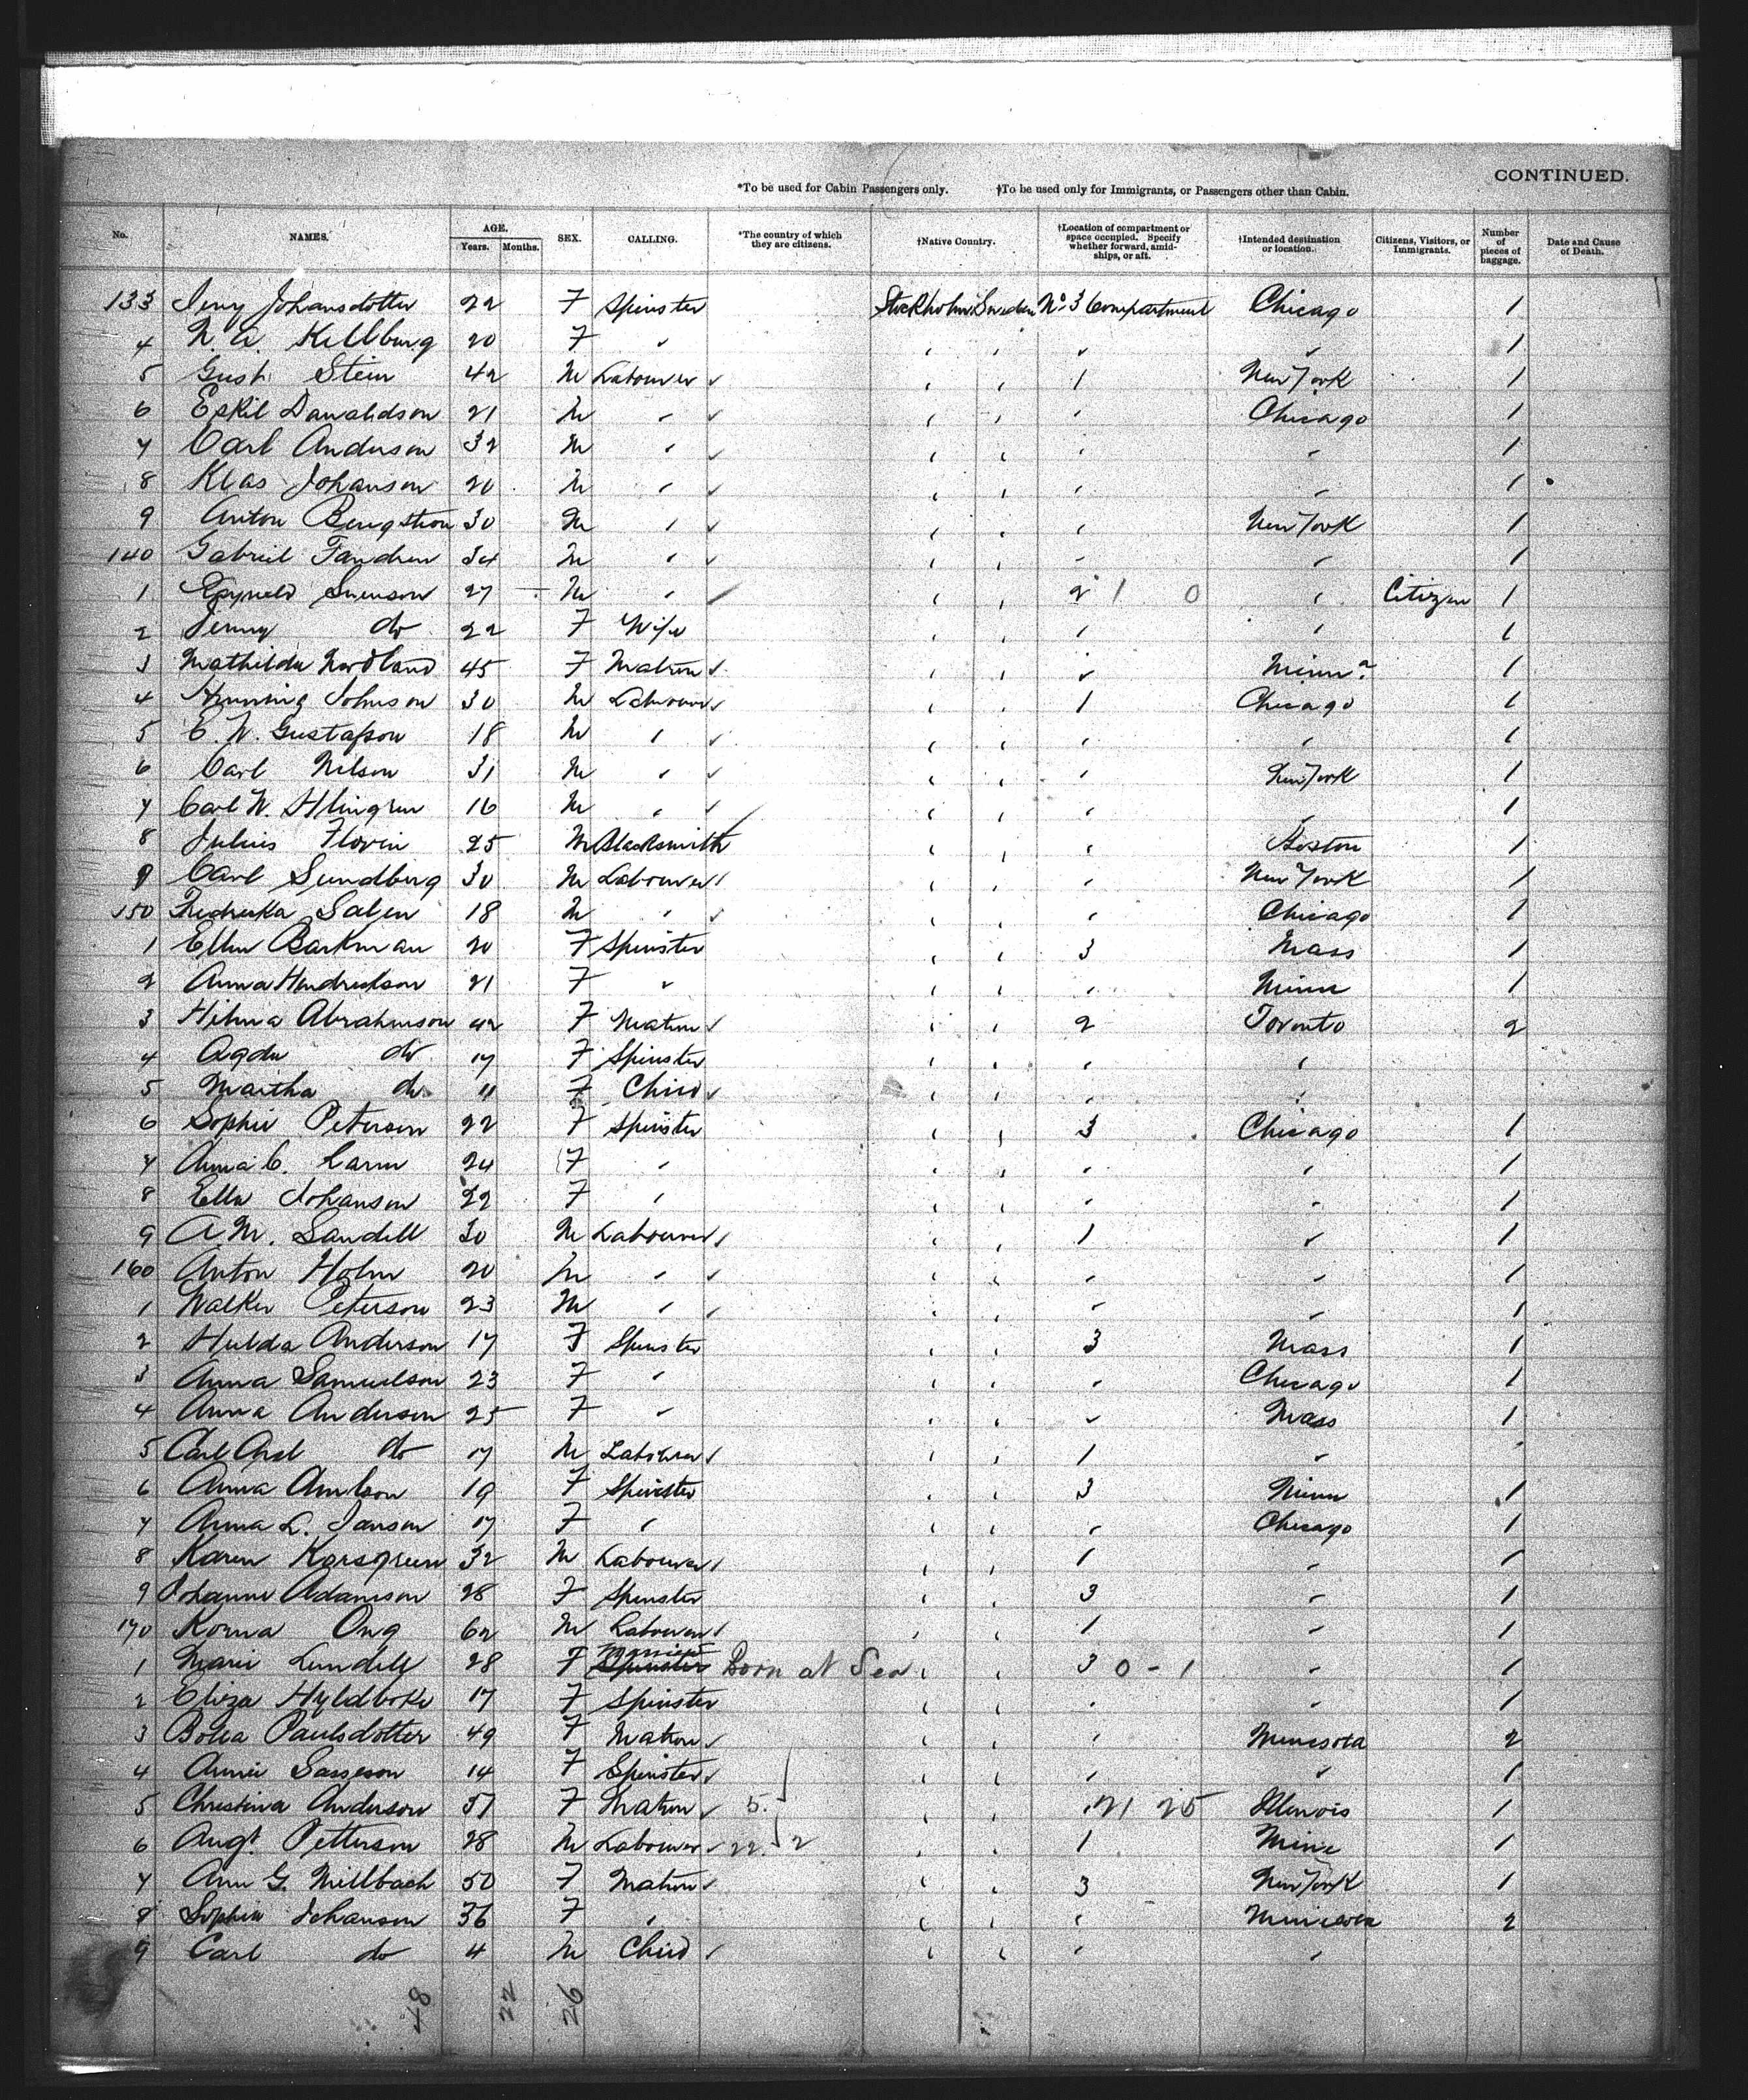 CONTINUED.
*To be used for Cabin Passengers only. †To be used only for Immigrants, or Passengers other than Cabin.
No. NAMES. AGE. Years. Months. SEX. CALLING. *The country of which they are citizens. †Native Country. †Location of compartment or space occupied. Specify whether forward, amidships, or aft. †Intended destination or location. Citizens, Visitors, or Immigrants. Number of pieces of baggage. Date and Cause of Death.
133 Jeny Johansdotter 22 F Spinster Stockholm Sweden No 3 Compartment Chicago 1
4 N. A. Kellburg 20 F " " " " " 1
5 Gust. Stein 42 M Labourer " " 1 New York 1
6 Eskil Dawaldson 21 M " " " " Chicago 1
7 Carl Anderson 32 M " " " " " 1
8 Klas Johanson 20 M " " " " " 1
9 Anton Bengstrom 30 M " " " " New York 1
140 Gabriel Fandren 34 M " " " " " 1
1 Swenson 27 M " " " 2 1 0 " Citizen 1
2 Jenny do 22 F Wife " " " " 1
3 Mathilda Nordland 45 F Matron " " " Minn 1
4 Henning Johnson 30 M Labourer " " 1 Chicago 1
5 C. W. Gustafson 18 M " " " " " 1
6 Carl Nilson 31 M " " " " New York 1
7 Carl W. Hlingren 16 M " " " " " 1
8 Julius Florin 25 M Blacksmith " " " Boston 1
9 Carl Sundberg 30 M Labourer " " " New York 1
150 Fredrika Salen 18 M " " " " Chicago 1
1 Ellen Barkman 20 F Spinster " " 3 Mass 1
2 Anna Hendrickson 21 F " " " " Minn 1
3 Hilma Abrahmson 42 F Matron " " 2 Toronto 2
4 Agda do 17 F Spinster " " " "
5 Martha do 11 F Child " " " "
6 Sophie Peterson 22 F Spinster " " 3 Chicago 1
7 Anna C. Larm 24 F " " " " " 1
8 Ella Johanson 22 F " " " " " 1
9 A. M. Sandell 30 M Labourer " " 1 " 1
160 Anton Holm 20 M " " " " " 1
1 Walker Peterson 23 M " " " " " 1
2 Hulda Anderson 17 F Spinster " " 3 Mass 1
3 Anna Samuelson 23 F " " " " Chicago 1
4 Anna Anderson 25 F " " " " Mass 1
5 Carl do 17 M Labourer " " 1 "
6 Anna 19 F Spinster " " 3 Minn 1
7 Anna L. Janson 17 F " " " " Chicago 1
8 Karen Korsgreen 32 M Labourer " " 1 " 1
9 Johanne Adamson 28 F Spinster " " 3 " 1
170 Korna Ong 62 M Labourer " " 1 " 1
1 Marie Lundell 28 F Spinster Married Born at Sea " " 3 0 - 1 " 1
2 Eliza Hyldboke 17 F Spinster " " " " 1
3 Botta Paulsdotter 49 F Matron " " " Minesota 2
4 Annie Sasseson 14 F Spinster " " " " 1
5 Christina Anderson 57 F Matron 5. " " " 21 25 Illinois 1
6 Augt. Petterson 28 M Labourer 22. 2 " " 1 Minn 1
7 Ann G. Millbach 50 F Matron " " 3 New York 1
8 Sophia Johanson 36 F " " " " Minesota 2
9 Carl do 4 M Child " " " "
48 22 26